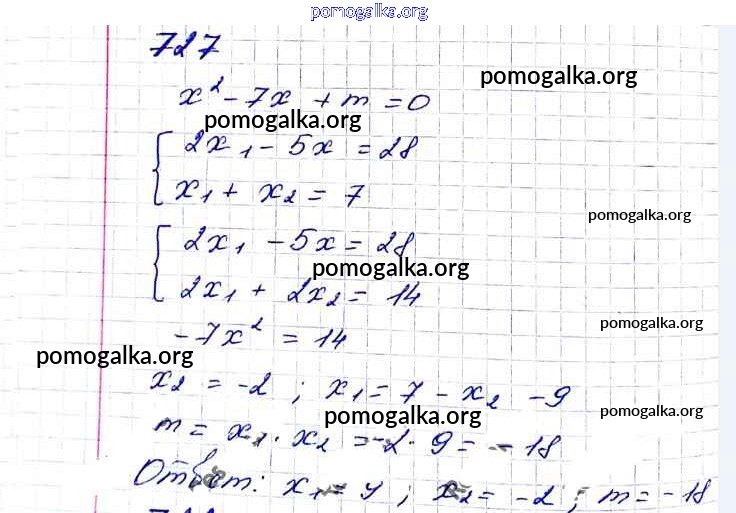 pomogalka.org
727
pomogalka.org
x² - 7x + m = 0
pomogalka.org
2x₁ - 5x = 28
x₁ + x₂ = 7
pomogalka.org
2x₁ - 5x = 28
pomogalka.org
2x₁ + 2x₂ = 14
pomogalka.org
-7x² = 14
pomogalka.org
x₂ = -2 ; x₁ = 7 - x₂ -9
pomogalka.org
pomogalka.org
m = x₁ · x₂ = -2 · 9 = -18
Ответ: x₁ = 9 ; x₂ = -2 ; m = -18